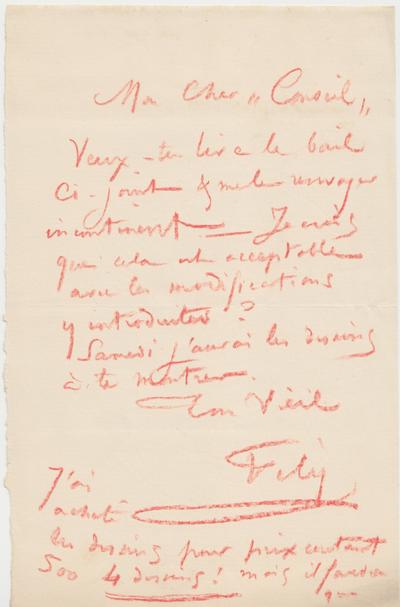 Mon Cher « Conseil »
Veux-tu lire le bail
ci-joint & me le renvoyer
incontinent — Je crois
que cela est acceptable
avec les modifications
y introduites ?
Samedi j'aurai les dessins
à te montrer.
Ton Vieil
Fély
J'ai
acheté
les dessins pour prix coutant
500 4 dessins ! mais il faudra
que